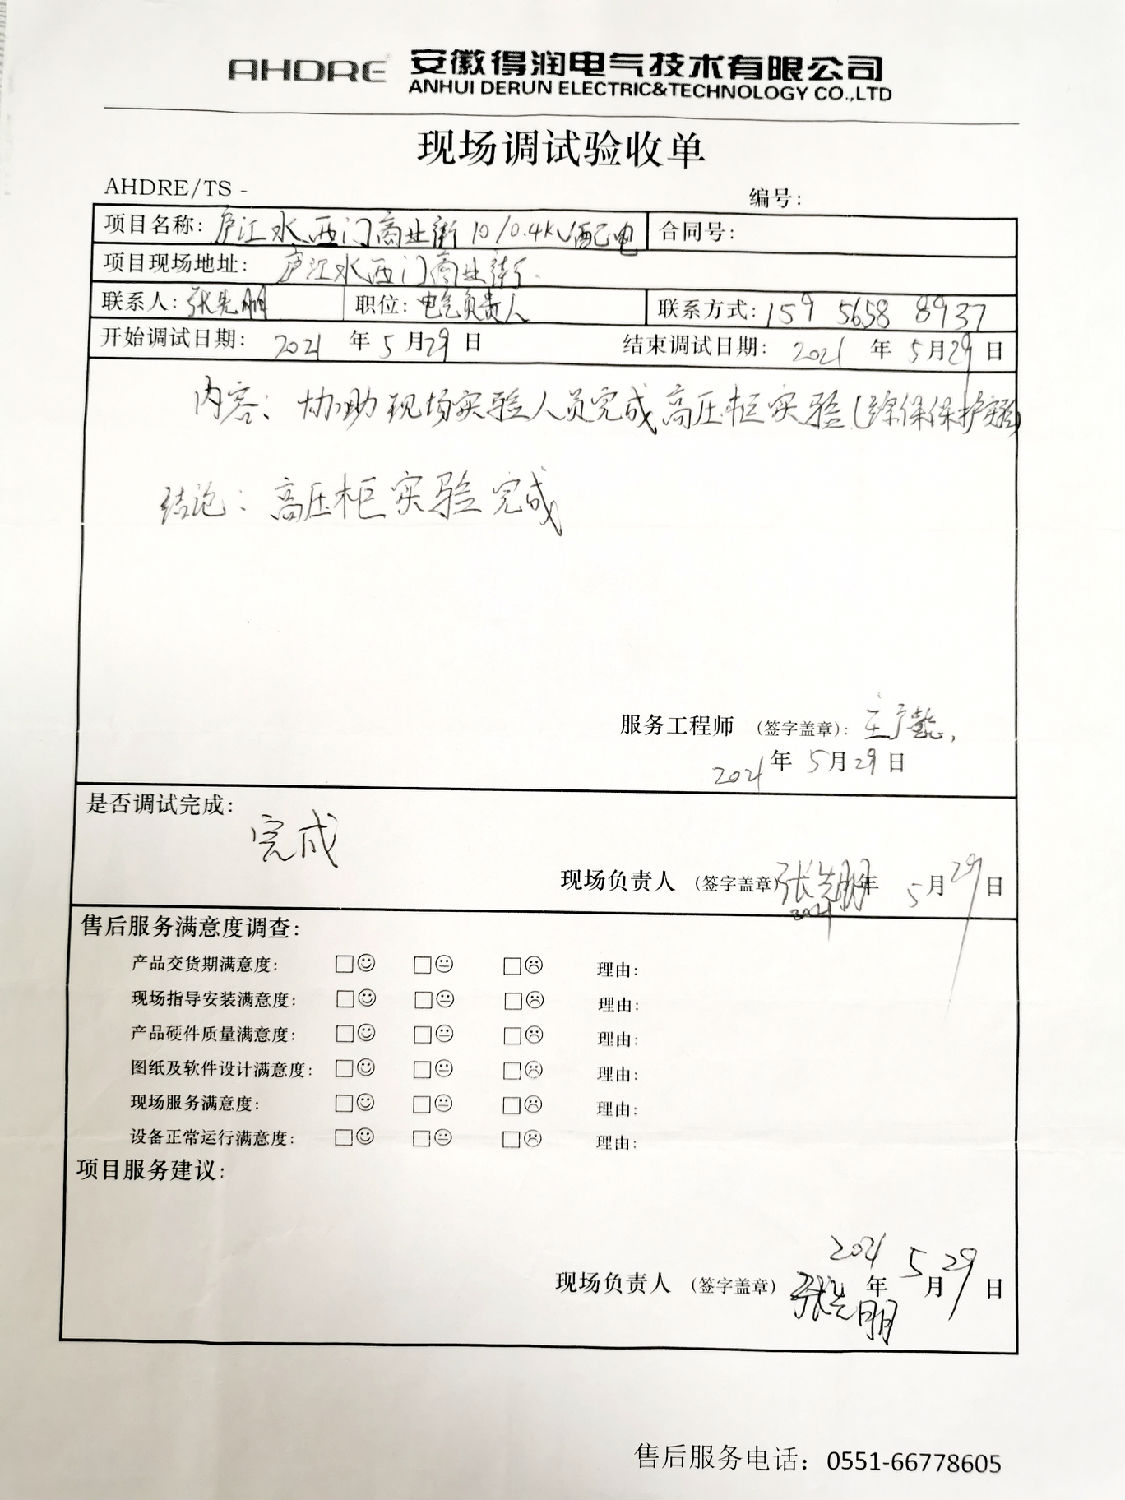 AHDRE 安徽得润电气技术有限公司
ANHUI DERUN ELECTRIC&TECHNOLOGY CO.,LTD
现场调试验收单
AHDRE/TS -
编号：
项目名称：庐江水西门商业街10/0.4kV配电 合同号：
项目现场地址：庐江水西门商业街
联系人：张先朋 职位：电气负责人 联系方式：159 5658 8937
开始调试日期：2021年5月29日 结束调试日期：2021年5月29日
内容：协助现场实验人员完成高压柜实验(综保保护实验)
结论：高压柜实验完成
服务工程师（签字盖章）：
2021年5月29日
是否调试完成：
完成
现场负责人（签字盖章）张先朋 年5月29日
2021
售后服务满意度调查：
产品交货期满意度： □☺ □😐 □☹ 理由：
现场指导安装满意度： □☺ □😐 □☹ 理由：
产品硬件质量满意度： □☺ □😐 □☹ 理由：
图纸及软件设计满意度： □☺ □😐 □☹ 理由：
现场服务满意度： □☺ □😐 □☹ 理由：
设备正常运行满意度： □☺ □😐 □☹ 理由：
项目服务建议：
2021 5 29
现场负责人（签字盖章） 年 月 日
张先朋
售后服务电话：0551-66778605